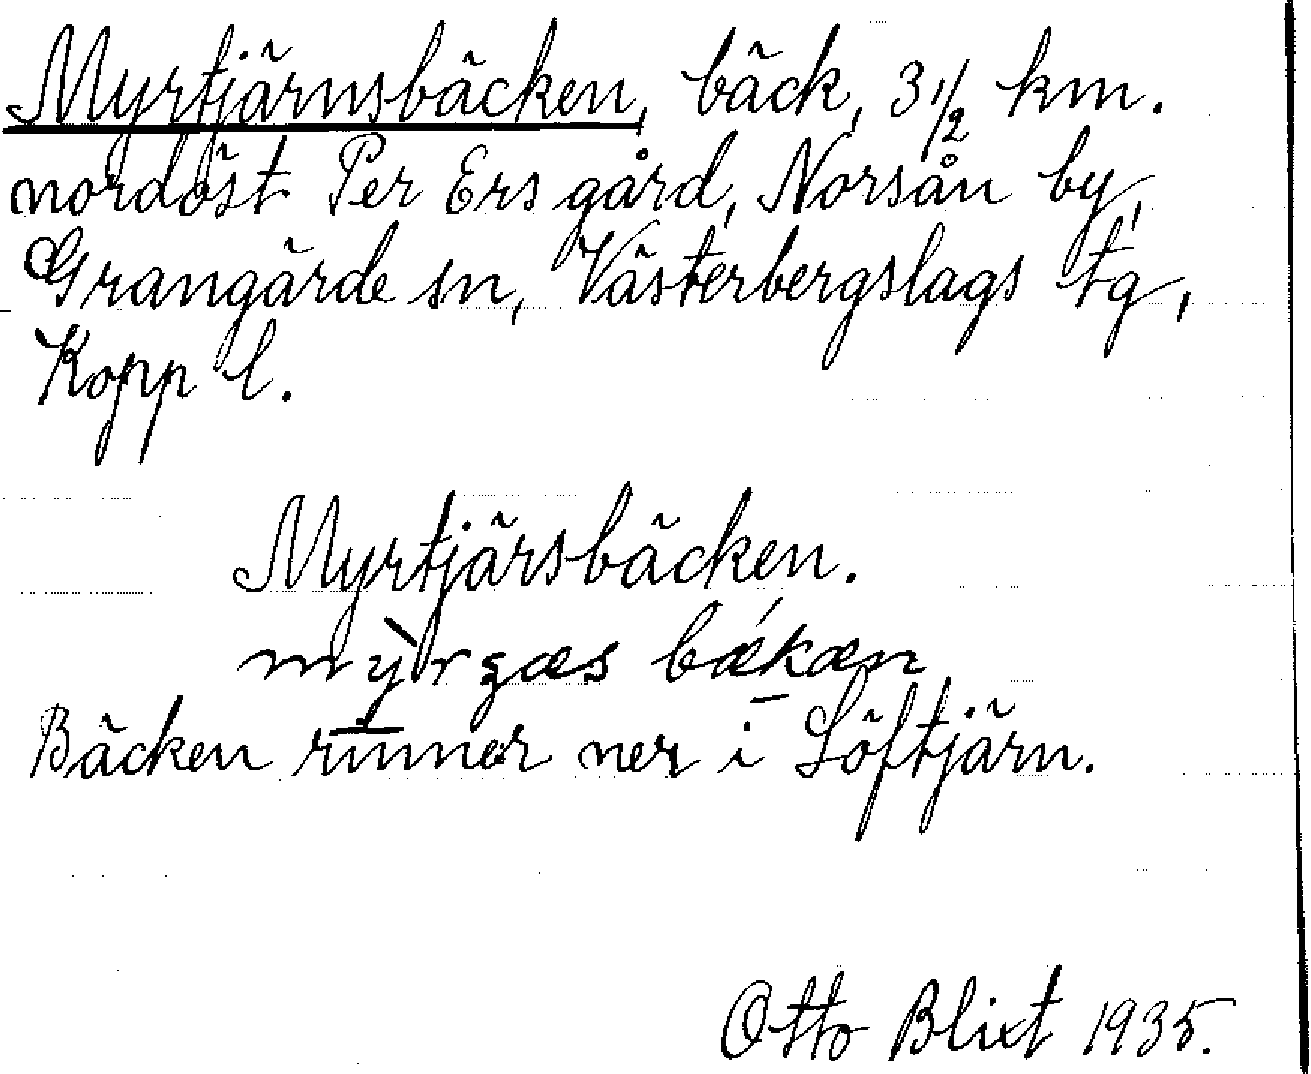 Myrtjärnsbäcken, bäck, 3 1/2 km.
nordöst Per Ers gård, Norsån by,
Grangärde sn, Västerbergslags tg,
Kopp l.
Myrtjärsbäcken.
Bäcken rinner ner i Löftjärn.
Otto Blixt 1935.